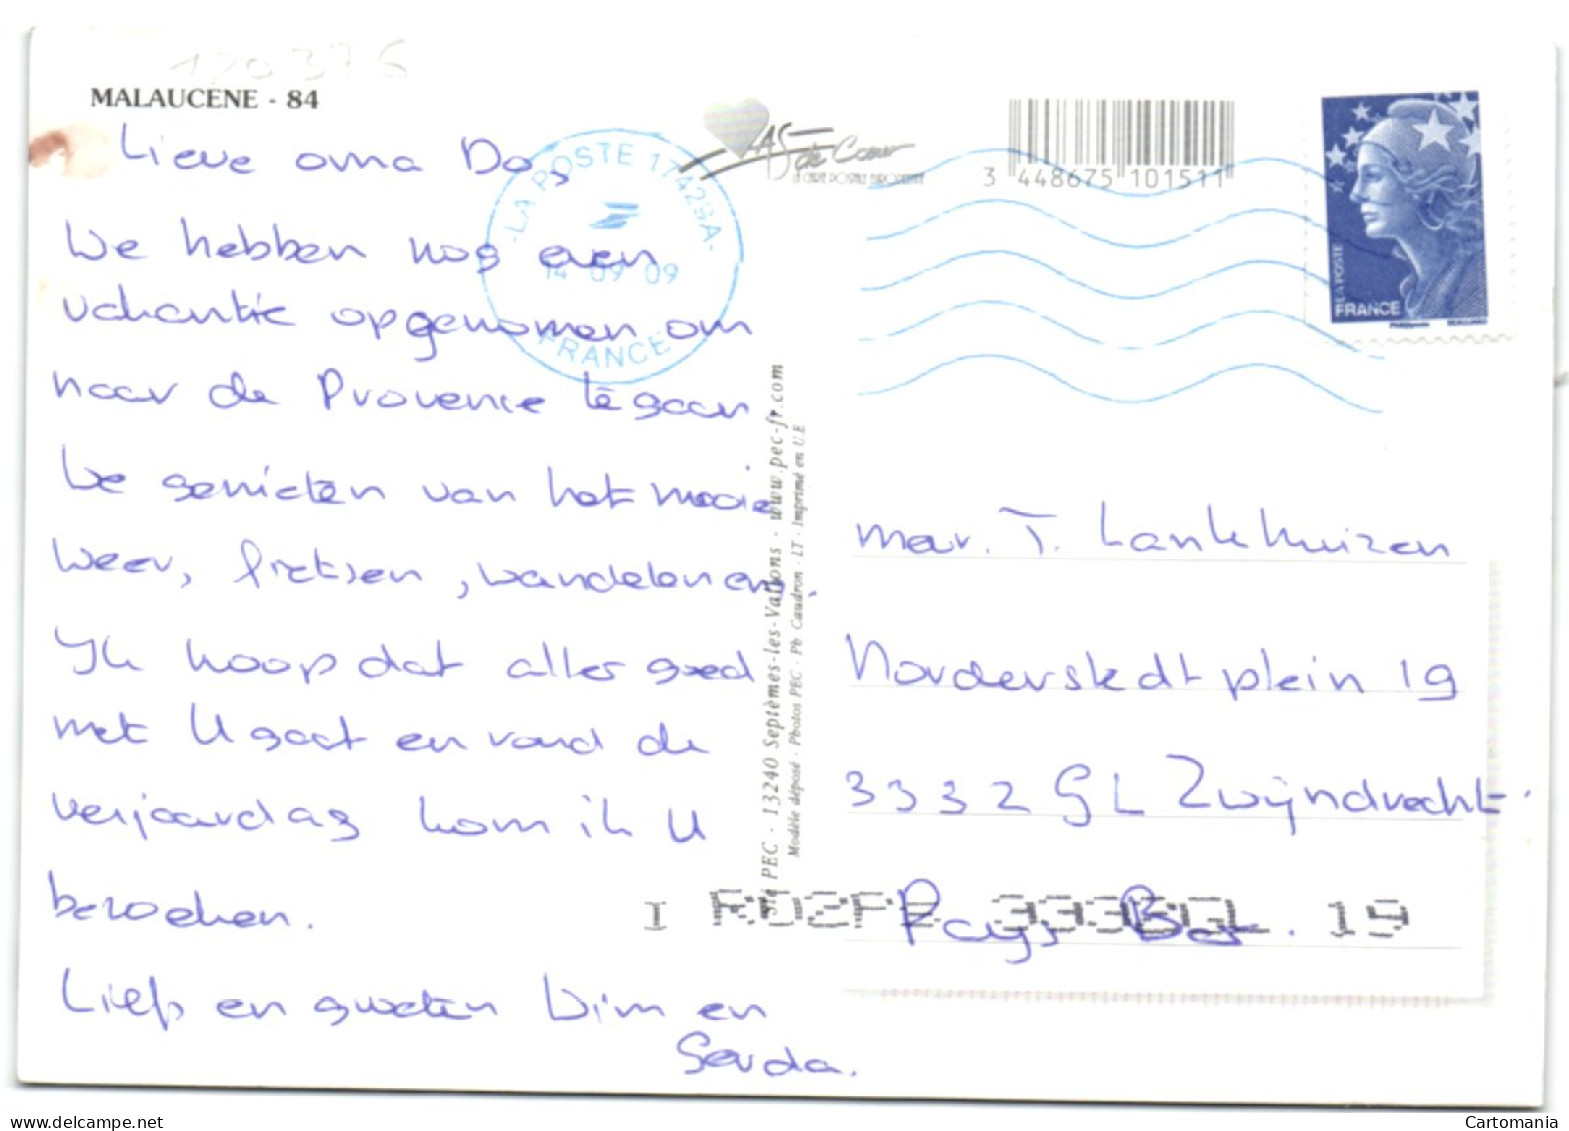 120376
MALAUCENE - 84
Lieve oma Do,
We hebben nog even
vakantie opgenomen om
naar de Provence te gaan
We genieten van het mooie
weer, fietsen, wandelen enz.
Ik hoop dat alles goed
met U gaat en rond de
verjaardag kom ik U
bezoeken.
Liefs en groeten Wim en
Gerda.
LA POSTE 17429A
14 09 09
FRANCE
AS de Cœur
LA CARTE POSTALE EUROPEENNE
3 448675 101511
LA POSTE
FRANCE
Sté PEC - 13240 Septèmes-les-Vallons - www.pec-fr.com
Modèle déposé - Photos PEC - Ph Caudron - LT - Imprimé en U.E
mevr. T. Lankhuizen
Norderstedtplein 19
3332 GL Zwijndrecht.
Pays Bas.
I 3332GL 19
www.delcampe.net
Cartomania